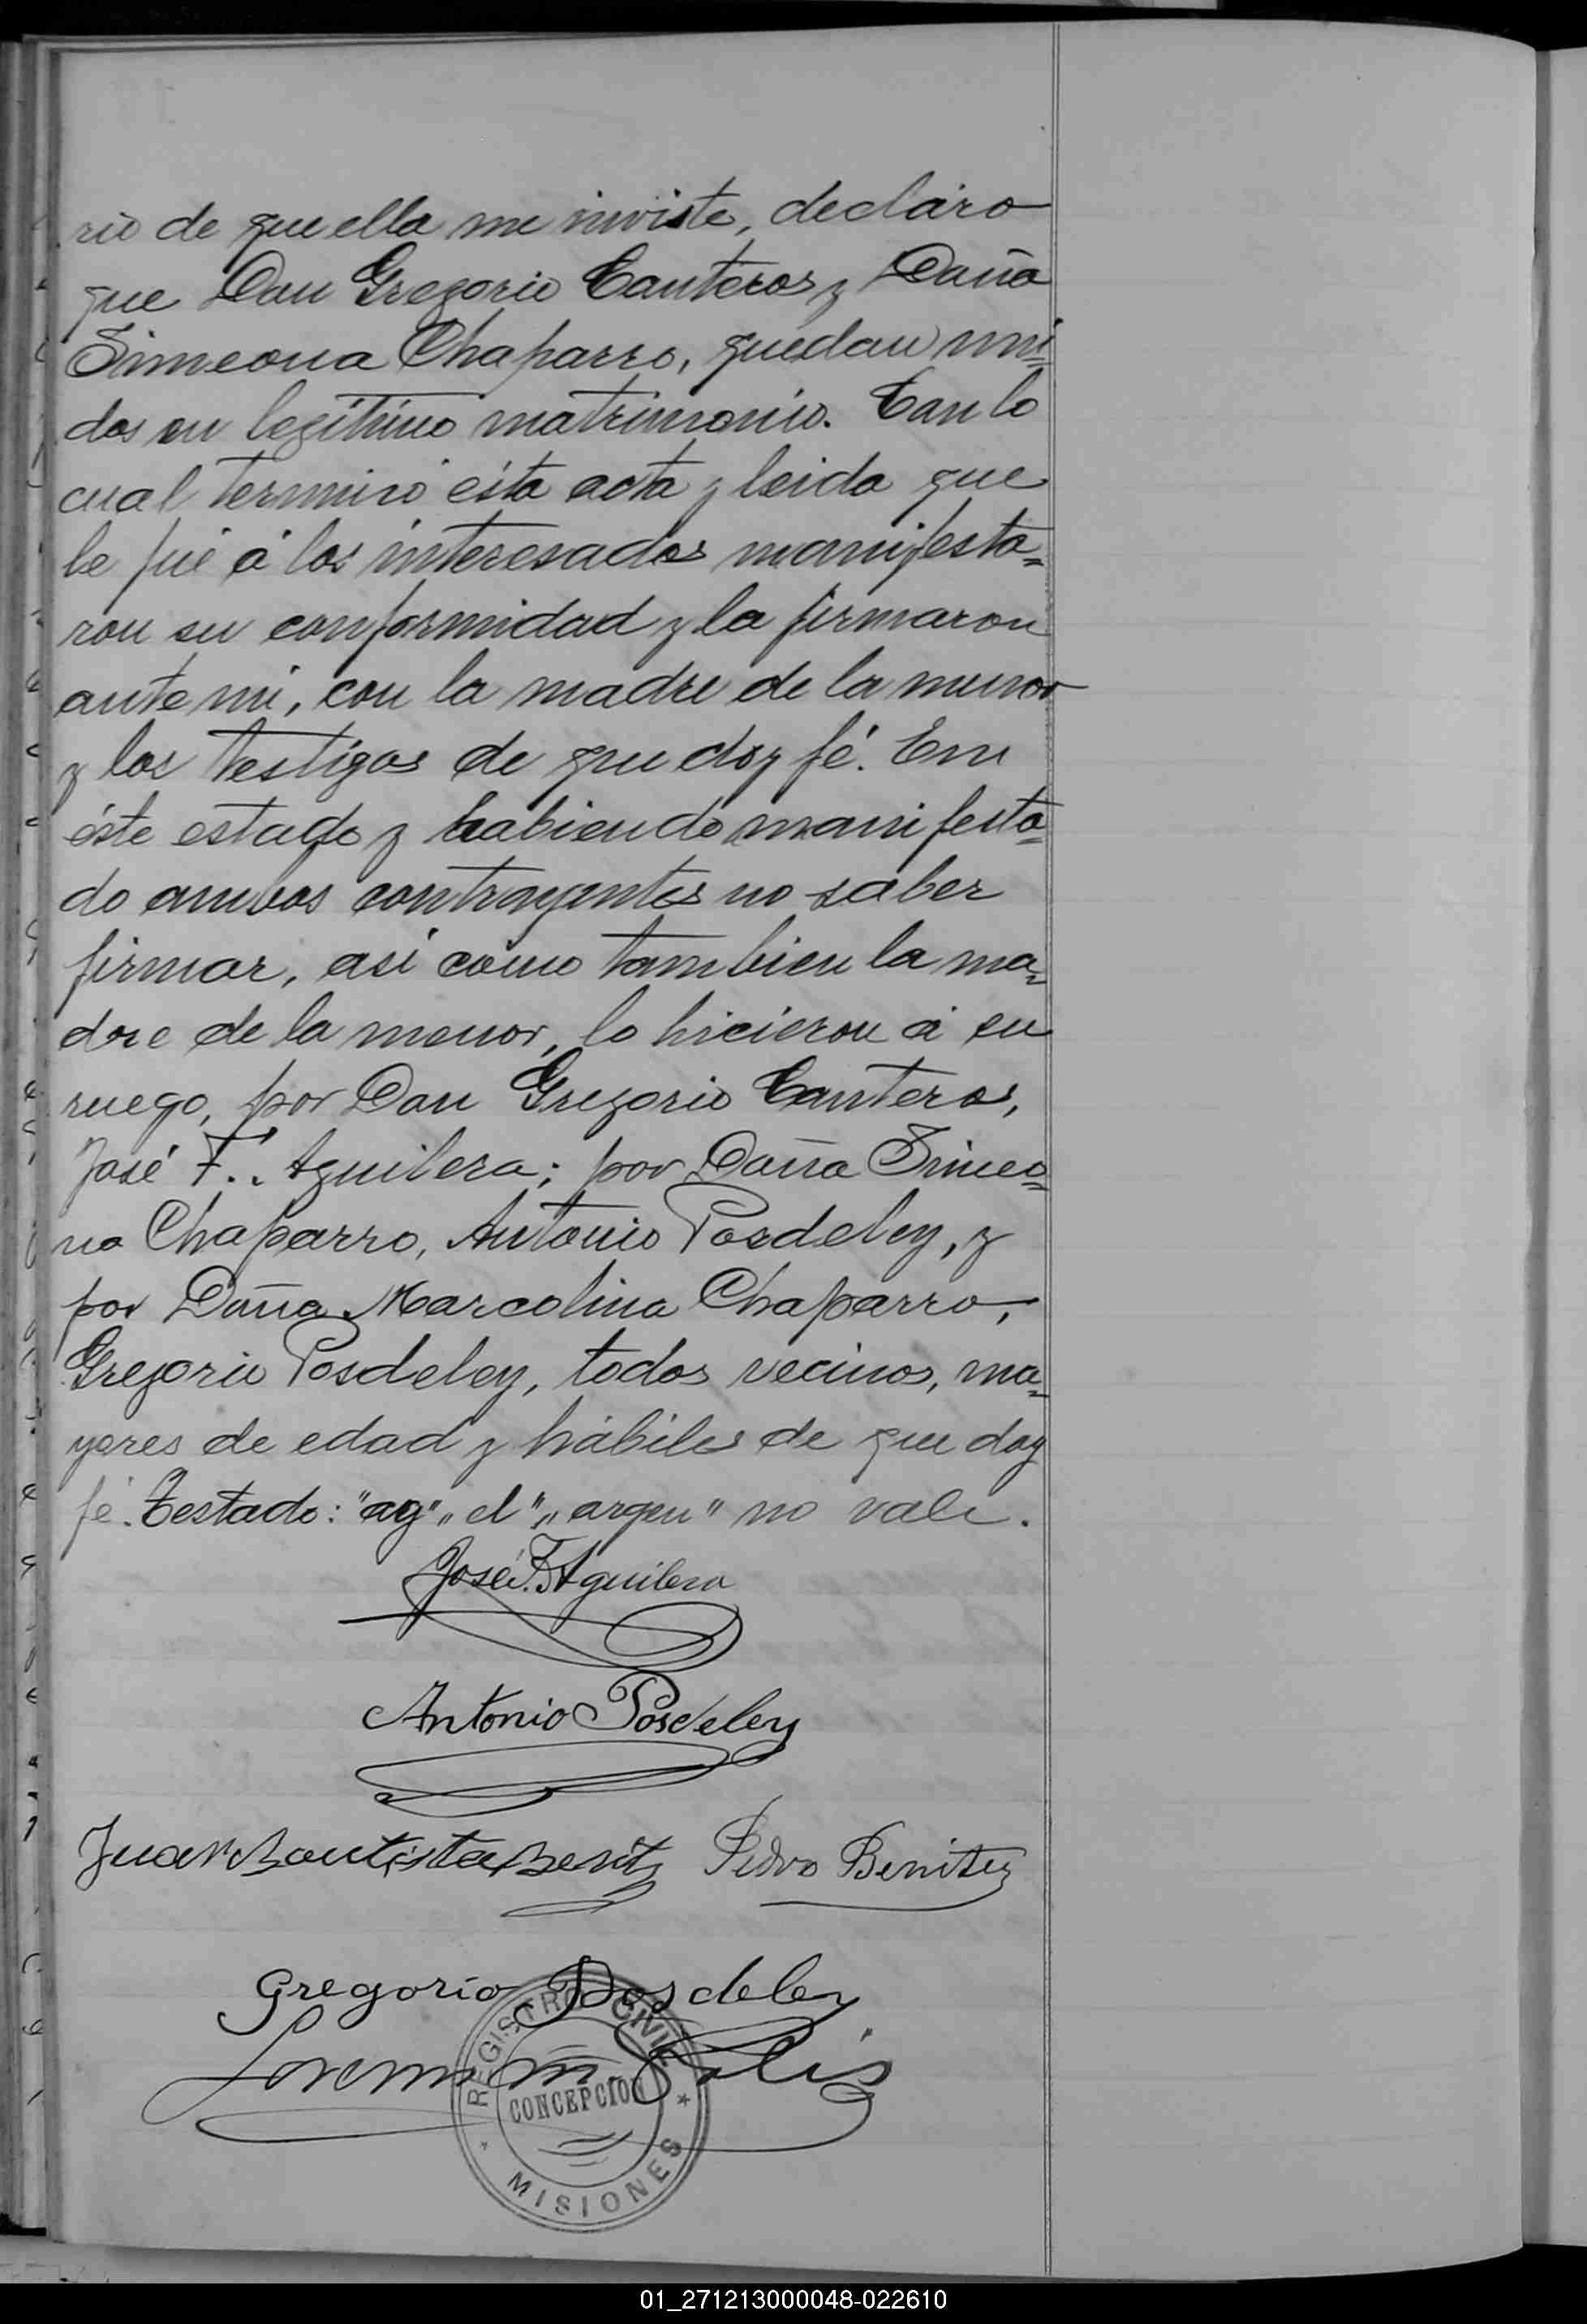 rio de que ella me inviste, declaro
que Don Gregorio Canteros y Doña
Simeona Chaparro, quedan uni=
dos en legítimo matrimonio. Con lo
cual terminó ésta acta y leida que
le fué á los interesados manifesta=
ron su conformidad y la firmaron
ante mi, con la madre de la menor
y los testigos de que doy fé. En
éste estado y habiendo manifesta=
do ambos contrayentes no saber
firmar, así como tambien la ma=
dre de la menor, lo hicieron á su
ruego, por Don Gregorio Canteros,
José F. Aguilera; por Doña Simeo=
na Chaparro, Antonio Posdeley, y
por Doña Marcolina Chaparro,
Gregorio Posdeley, todos vecinos, ma=
yores de edad y hábiles de que doy
fé. Testado: "ag" "el" "argen" no vale.
José F. Aguilera
Antonio Posdeley
Juan Bautista Benitz Pedro Benitez
Gregorio Posdeley
Solis
REGISTRO CIVIL
CONCEPCION
MISIONES
01_271213000048-022610